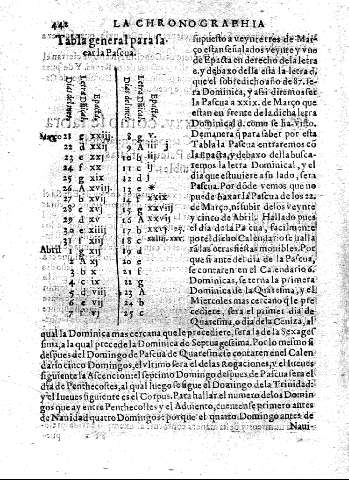 442 LA CHRONOGRAPHIA
Tabla general para sa-
car la Pascua.
Dias del mes.
Letra Dñical.
Epactas.
Dias del mes
Letra Dñical
Epactas
Março 21 g xxiij. 8 g v.
22 d xxij 9 A iij j
23 e xxj 10 b ij
24 f xx 11 c j
25 g xix 12 d
26 A xviij. 13 e *
27 b xvij 14 f xxix
28 c xvj 15 g xxviij
29 d xv 16 A xxvij
30 e xiiij 17 b
31 f xiij 18 c
Abril 1 g xij 19 d
2 A xj 20 e
3 b x 21 f
4 c ix 22 g
5 d viij 23 A
6 e vij 24 b
7 f vj 25 c
supuesto a veynte tres de Mar-
ço estan señalados veynte y vno
de Epacta en derecho de la letra
e, y debaxo della esta la letra d,
que el sobredicho año de 87. fe-
ra Dominica, y assi diremos ser
la Pascua a xxix. de Março que
estan en frente de la dicha letra
Dominical d. como se ha visto.
De manera q̃ para saber por esta
Tabla la Pascua entraremos cõ
la epacta, y debaxo della busca-
remos la letra Dominical, y el
dia que estuuiere a su lado, sera
Pascua. Por dõde vemos que no
puede baxar la Pascua de los 22.
de Março, ni subir de los veynte
y cinco de Abril. Hallado pues
el dia de la Pascua, facilmente
por el dicho Calendario se halla
rã las otras fiestas mouibles. Por
que si antes del dia de la Pascua,
se contaren en el Calendario 6.
Dominicas, se terna la primera
Dominica de la Quaresma, y el
Miercoles mas cercano q̃ le pre-
cediere, sera el primer dia de
Quaresma, o dia de la Ceniza, al
qual la Dominica mas cercana que le precediere, sera la de la Sexages-
sima, a la qual precede la Dominica de Septuagessima. Por lo mismo si
despues del Domingo de Pascua de Quaresma se contaren en el Calen-
dario cinco Domingos, el vltimo sera el de las Rogaciones, y el Iueues
siguiente la Ascencion: el septimo Domingo despues de Pascua sera el
dia de Penthecostes, al qual luego se sigue el Domingo de la Trinidad:
y el Iueues siguiente es el Corpus. Para hallar el numero de los Domin
gos que ay entre Penthecostes y el Aduiento, cuentense primero antes
de Nauidad quatro Domingos: porque el quarto Domingo antes de
Naui-